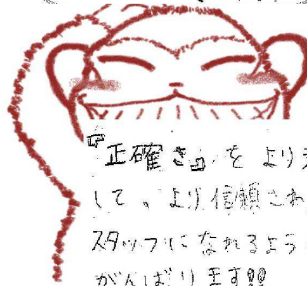 『正確さ』をより
して、より信頼され
スタッフになれるよう
がんばります!!